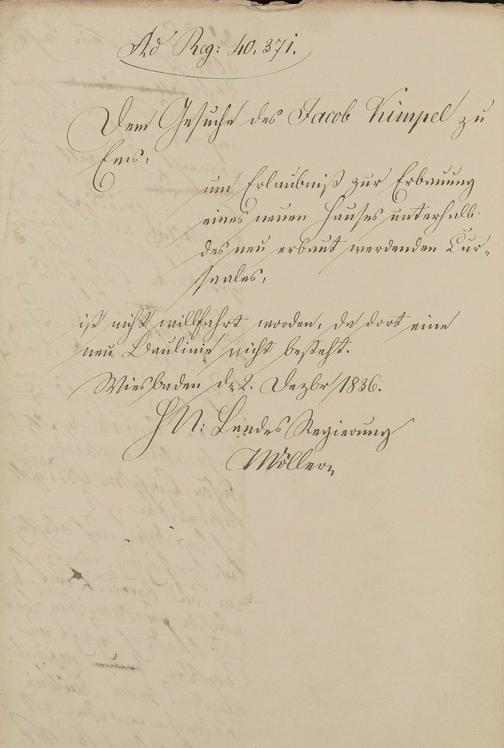 Ad Reg: 40,371.
Dem Gesuche des Jacob Kimpel zu
Ems,
um Erlaubniß zur Erbauung
eines neuen Hauses unterhalb
des neu erbaut werdenden Cur-
saales,
ist nicht willfahrt worden, da dort eine
neue Baulinie nicht besteht.
Wiesbaden d 2. Dezbr 1836.
H N: Landes Regierung
Möller